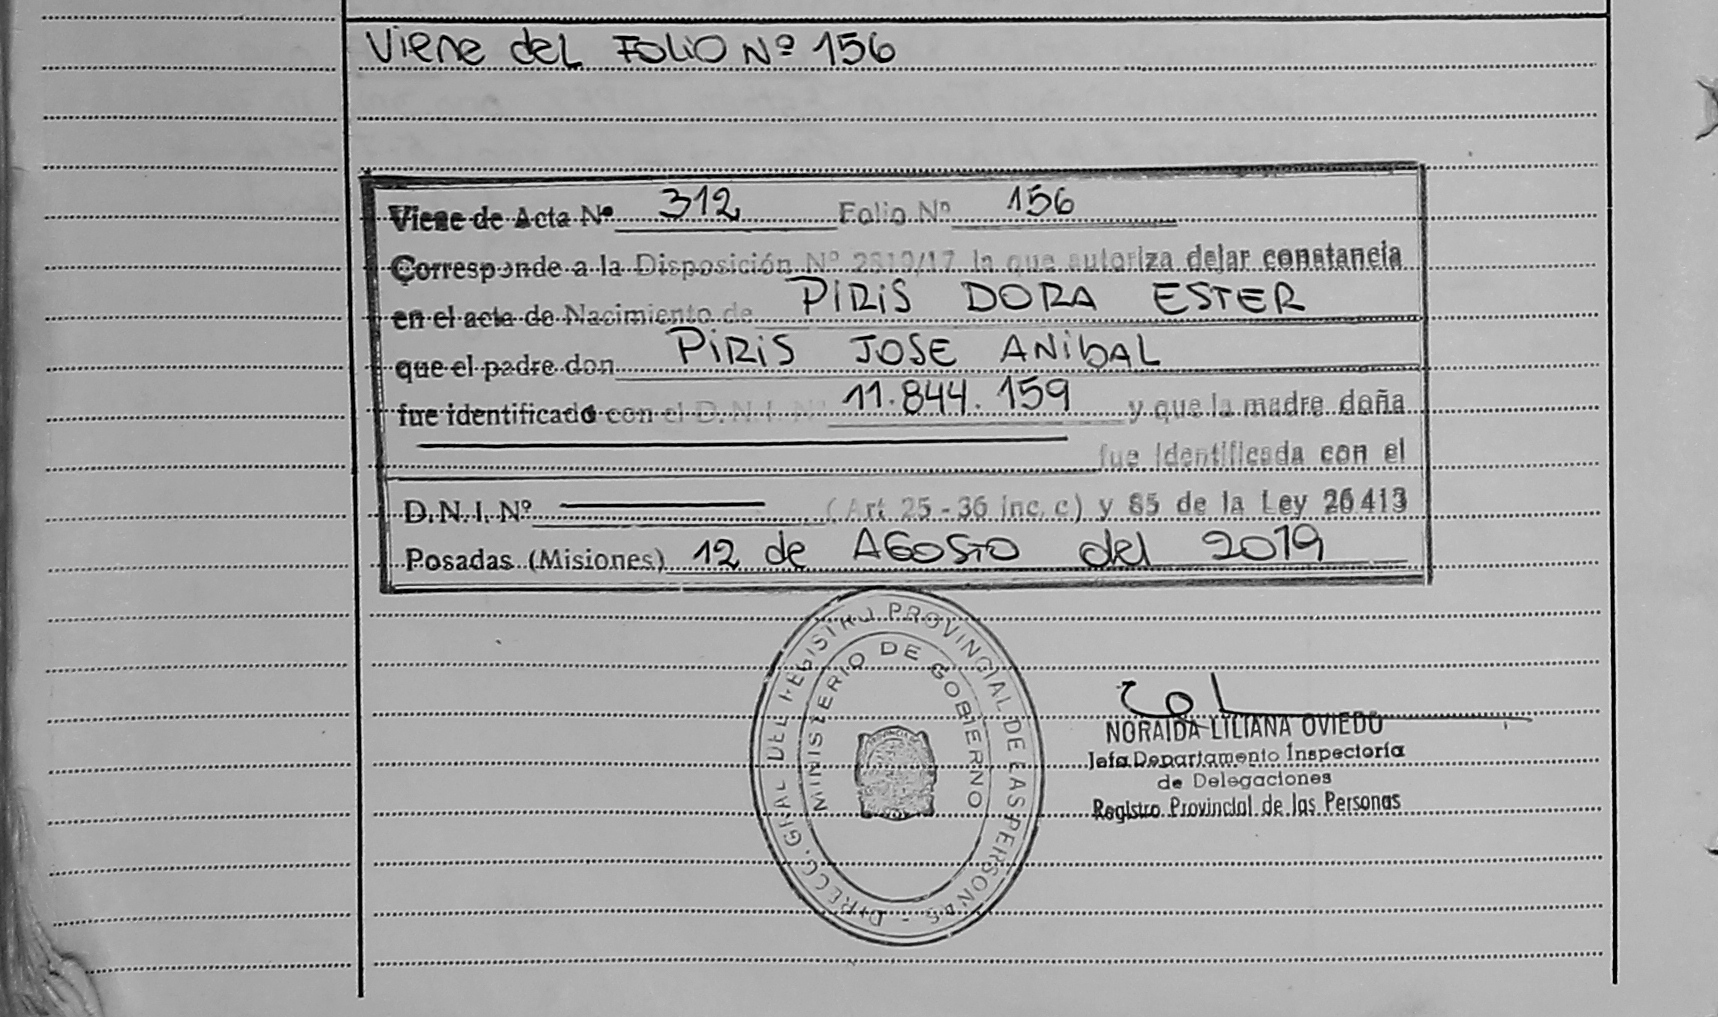 Viene del FOLIO Nº 156
Viene de Acta Nº 312 Folio Nº 156
Corresponde a la Disposición Nº 2819/17 la que autoriza dejar constancia
en el acta de Nacimiento de PIRIS DORA ESTER
que el padre don PIRIS JOSE ANIBAL
fue identificado con el D.N.I. Nº 11.844.159 y que la madre doña
fue identificada con el
D.N.I. Nº (Art 25 - 36 inc. c) y 85 de la Ley 26413
Posadas (Misiones) 12 de AGOSTO del 2019
DIRECC. GRAL DEL REGISTRO PROVINCIAL DE LAS PERSONAS
MINISTERIO DE GOBIERNO
NORAIDA LILIANA OVIEDO
Jefa Departamento Inspectoría
de Delegaciones
Registro Provincial de las Personas